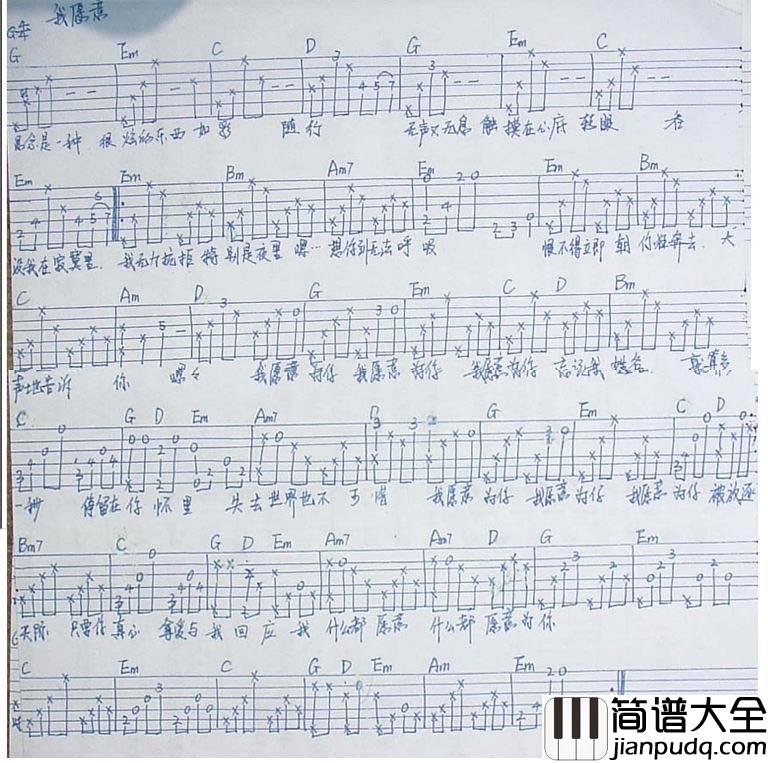 G调 我愿意
G Em C D G Em C
思念是一种 很炫的东西 如影 随行 无声又无息 触摸在心底 转眼 吞
Em Em Bm Am7 Em Em Bm
没我在寂寞里. 我无力抗拒 特别是夜里 嘿… 想你到无法呼吸 恨不得立即 朝你狂奔去. 大
C Am D G Em C D Bm
声地告诉 你 我愿意 为你 我愿意 为你 我愿意 为你 忘记我 姓名.
C G D Em Am7 D G Em C D
一秒 停留在你怀里 失去世界也不可惜 我愿意 为你 我愿意 为你 我愿意 为你 被放逐
Bm7 C G D Em Am7 Am7 D G Em
天际 只要你真心 拿爱与我回应 我 什么都 愿意 什么都 愿意 为你
C Em C G D Em Am Em
简谱大全
jianpudq.com